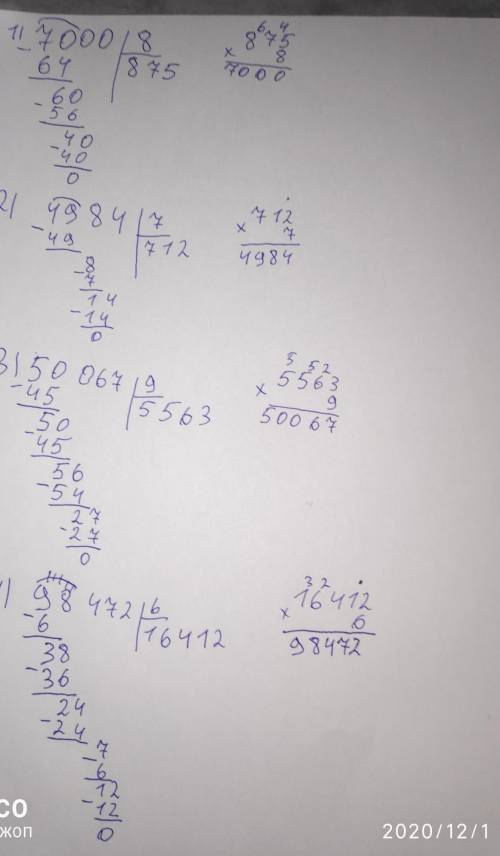 1) 7000 8 8 6 7 4 5
- 64 875 × 8
60 7000
- 56
40
- 40
0
2) 4984 7 712
- 49 712 × 7
8 4984
- 7
14
- 14
0
3) 50 067 9 3 5 2
- 45 5563 5563
50 × 9
- 45 50067
56
- 54
27
- 27
0
98 472 6 3 2
- 6 16412 16412
38 × 6
- 36 98472
24
- 24
7
- 6
12
- 12
0
со
жоп
2020/12/1